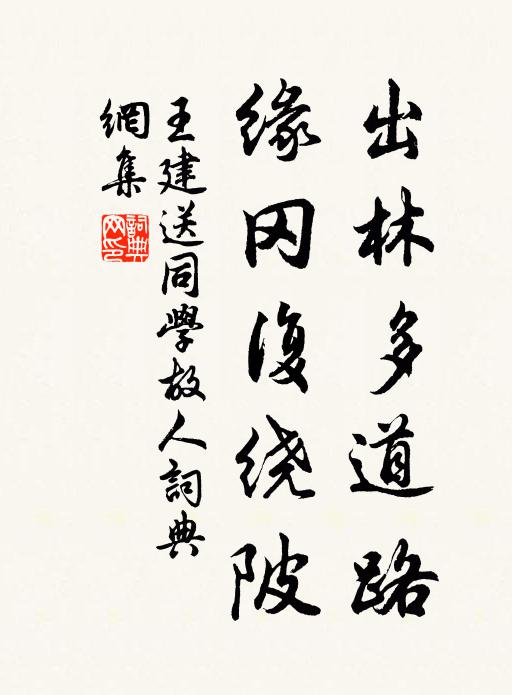 出林多道路
缘冈復绕陂
王建送同學故人詞典
網集
詞典
网印